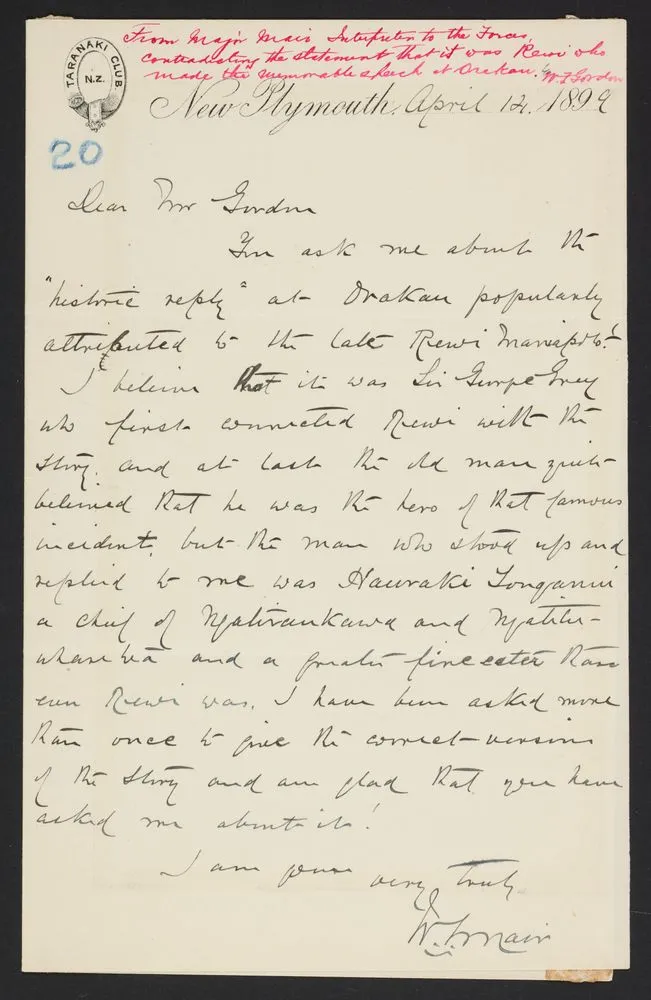 From Major Mair. Interpreter to the Forces,
contradicting the statement that it was Rewi who
made the memorable speech at Orakau, W.F. Gordon
TARANAKI CLUB
N.Z.
New Plymouth. April 12. 1899
20
Dear Mr Gordon
You ask me about the
"historic reply" at Orakau popularly
attributed to the late Rewi Maniapoto!
I believe that it was Sir George Grey
who first connected Rewi with the
story, and at last the old man quite
believed that he was the hero of that famous
incident, but the man who stood up and
replied to me was Hauraki Tonganui
a chief of Ngatiraukawa and Ngatitu-
wharetoa and a greater fire eater than
even Rewi was. I have been asked more
than once to give the correct version
of the story and am glad that you have
asked me about it!
I am yours very truly
W. G. Mair